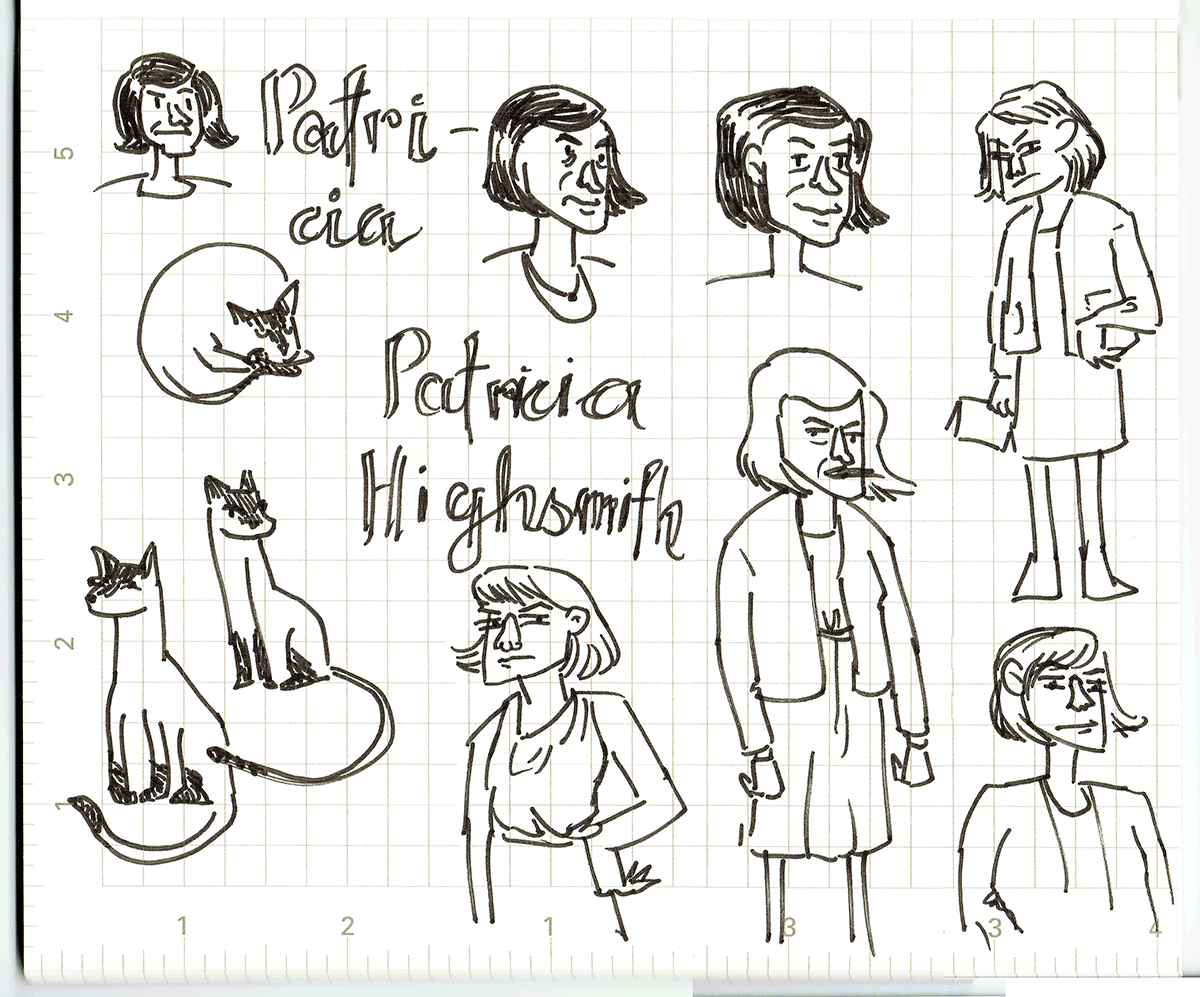 Patri-
cia
Patricia
Highsmith
5
4
3
2
1
1 2 1 3 3 4